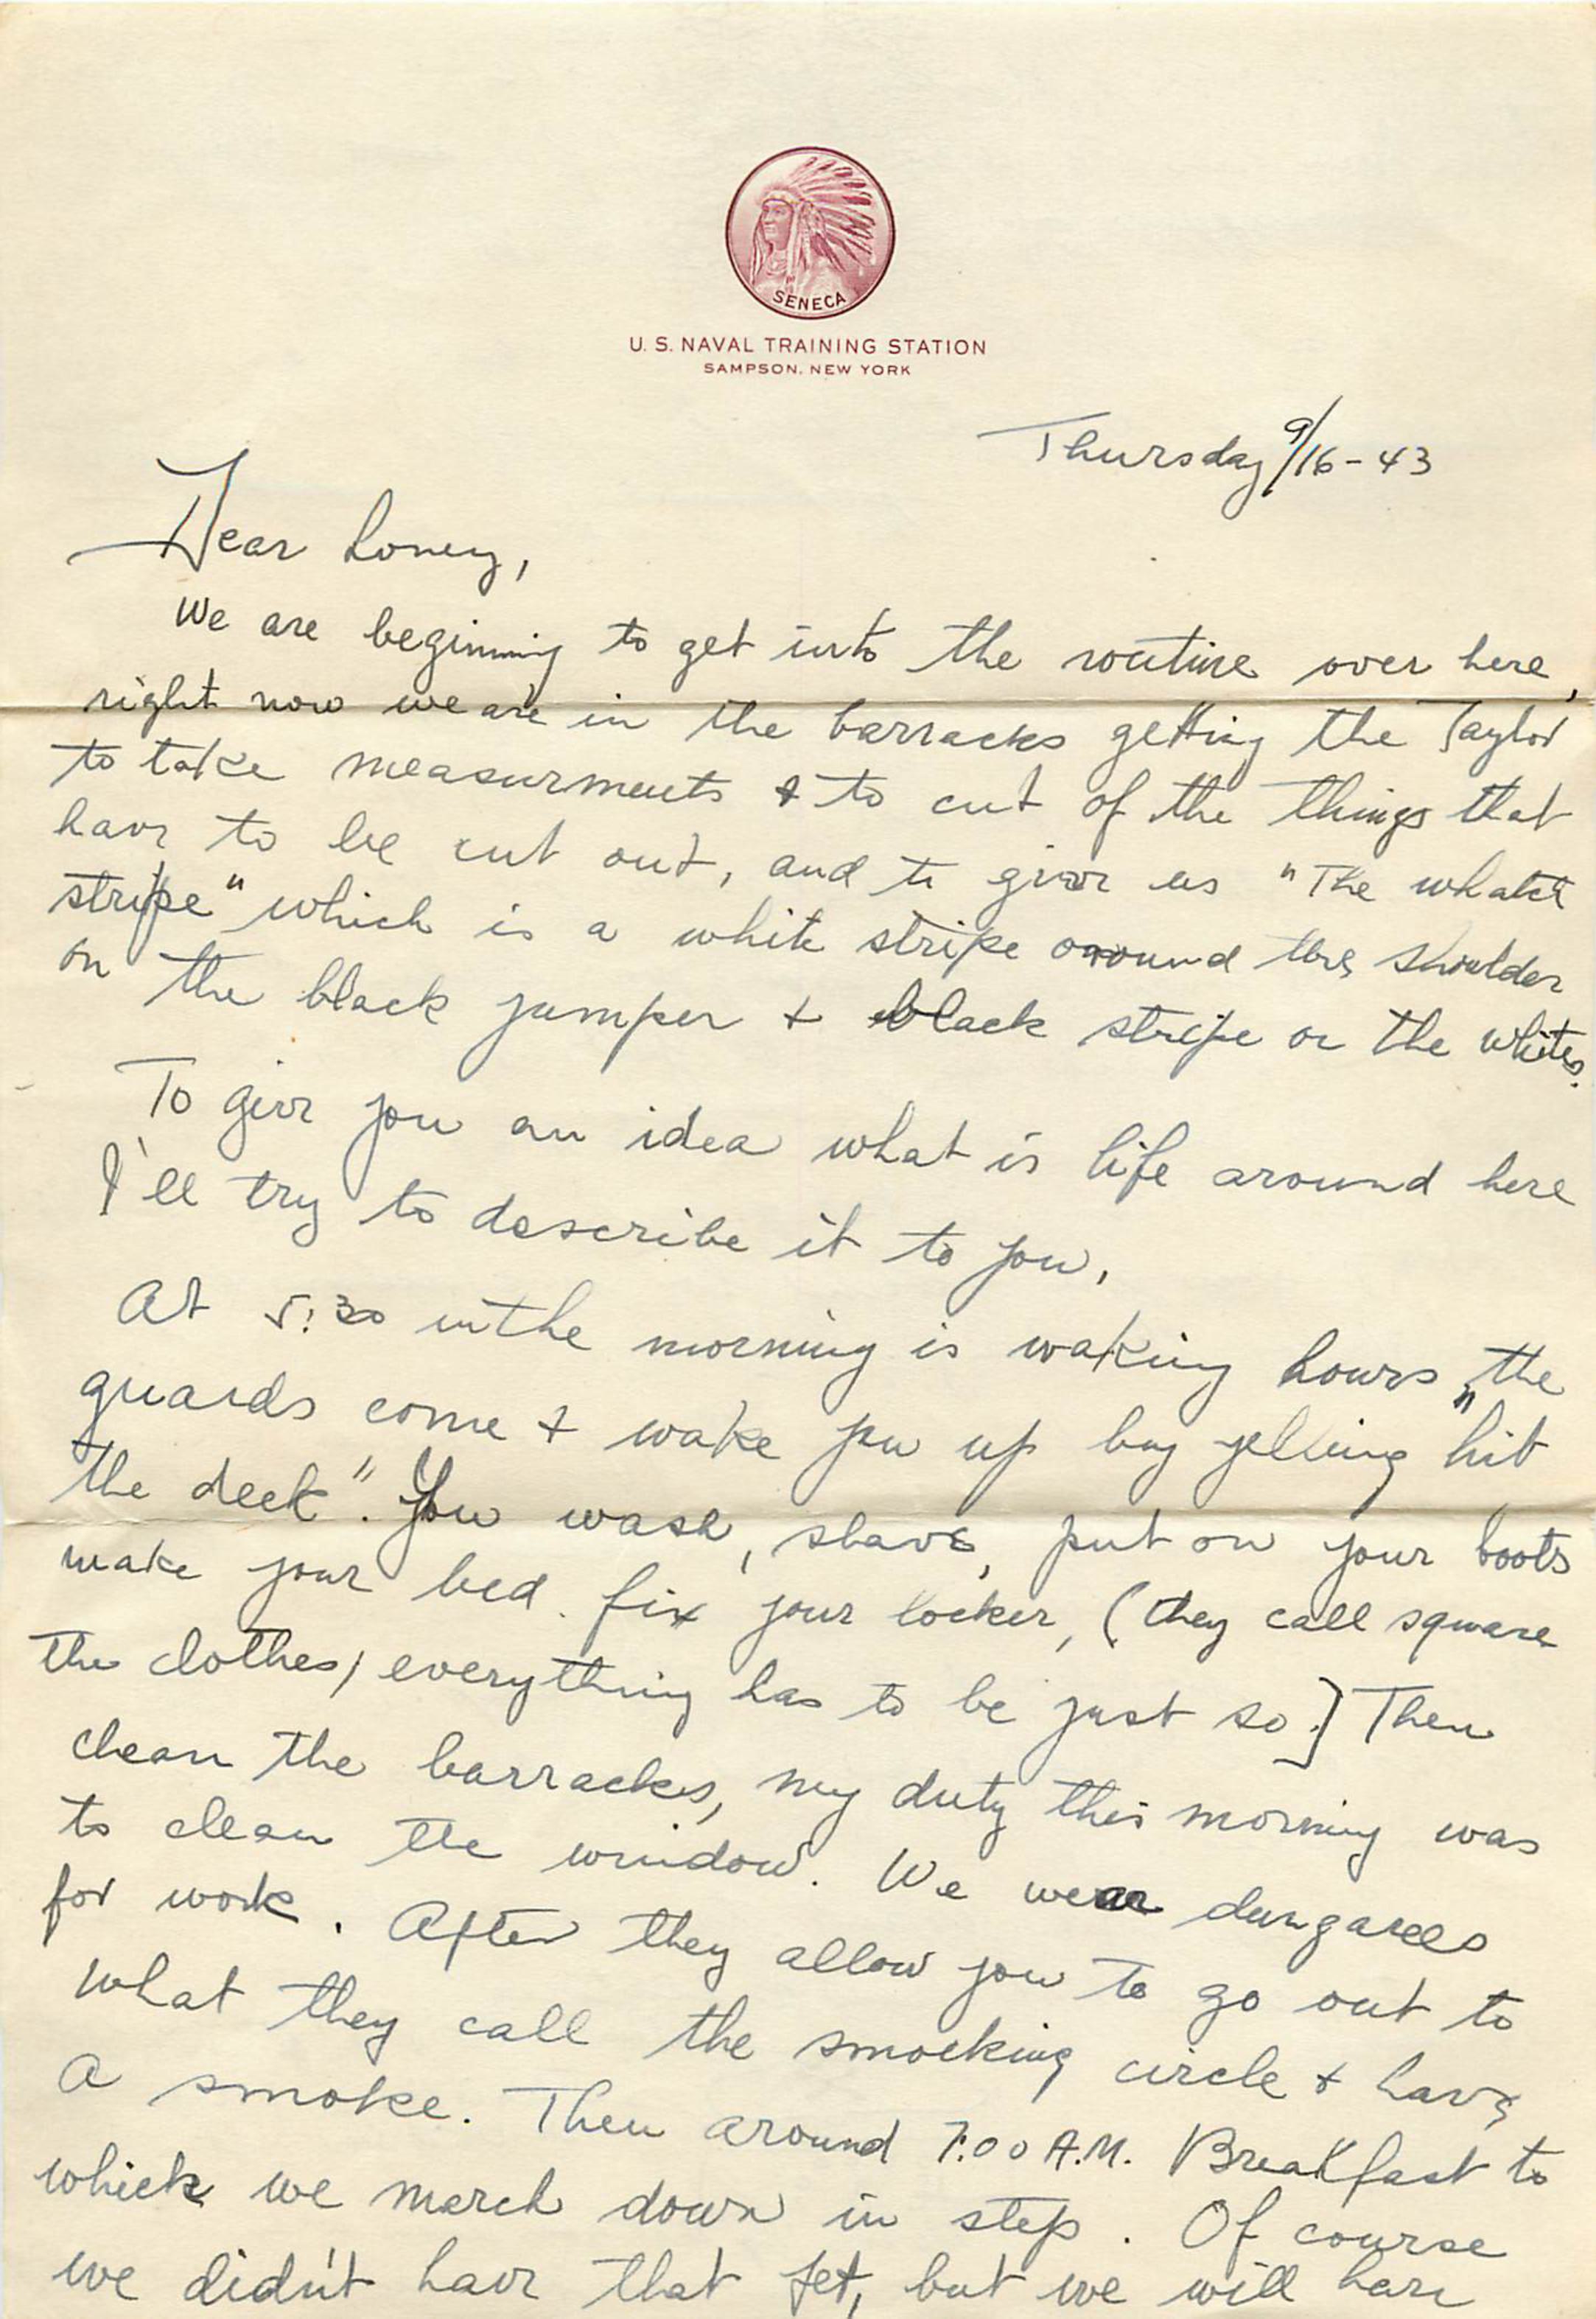 SENECA
U. S. NAVAL TRAINING STATION
SAMPSON, NEW YORK
Thursday 9/16-43
Dear honey,
We are beginning to get into the routine over here,
right now we are in the barracks getting the Taylor
to take measurments & to cut of the things that
have to be cut out, and to give us "The
stripe" which is a white stripe around the shoulder
on the black jumper & black stripe on the whites.
To give you an idea what is life around here
I'll try to describe it to you,
At 5:30 in the morning is waking hours, the
guards come & wake you up by yelling "hit
the deck". You wash, shave, put on your boots
make your bed. fix your locker, (they call square
the clothes, everything has to be just so.] Then
clean the barracks, my duty this morning was
to clean the window. We wear dungarees
for work. After they allow you to go out to
what they call the smocking circle & have
a smoke. Then around 7:00 A.M. Breakfast to
which we march down in step. Of course
we didn't have that yet, but we will have